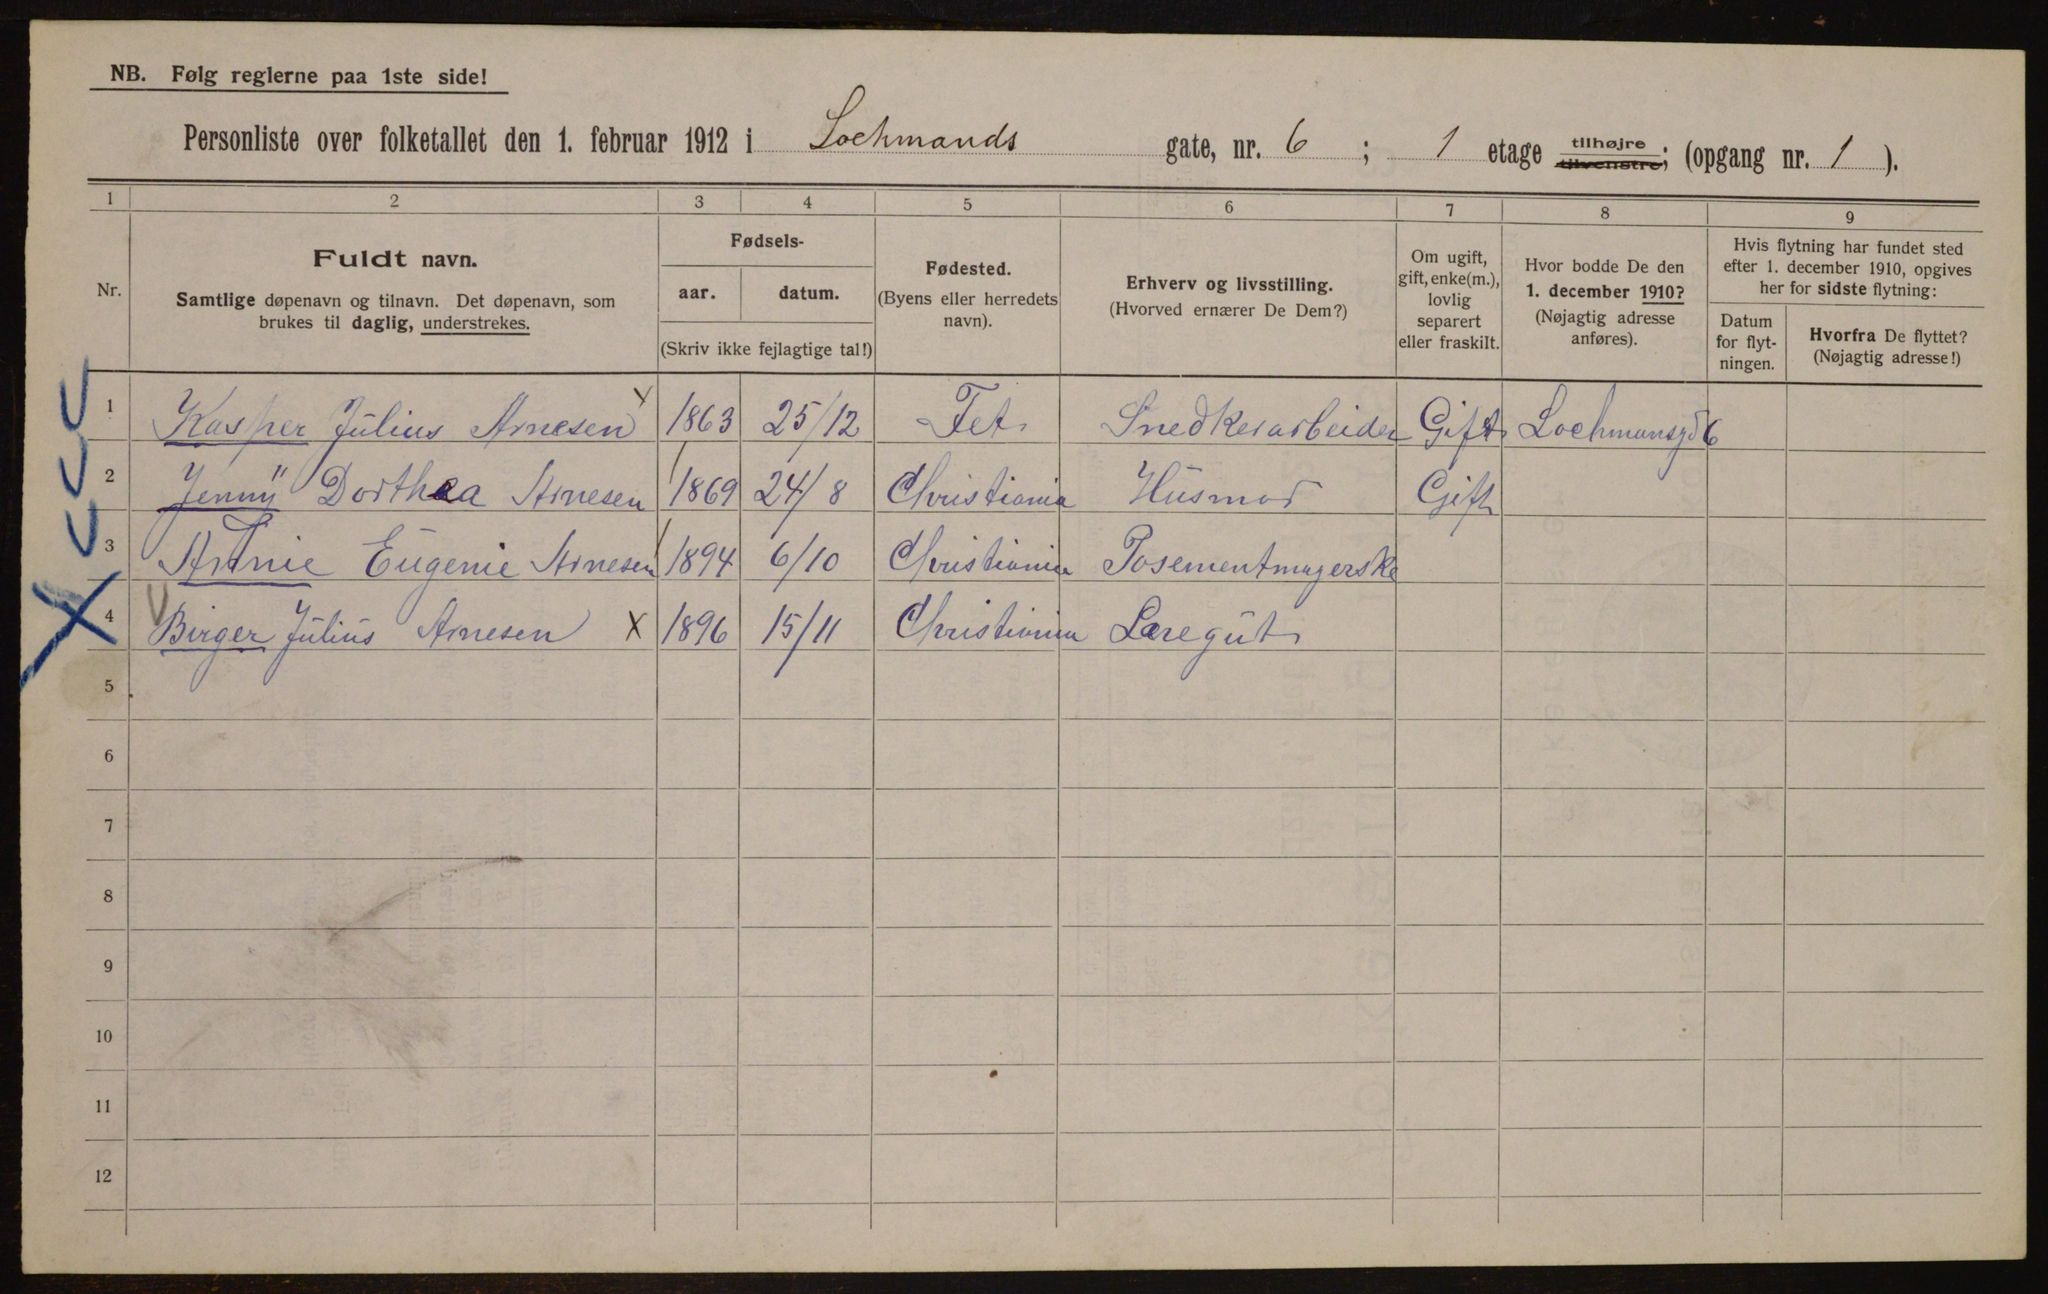 NB. Følg reglerne paa 1ste side!
Personliste over folketallet den 1. februar 1912 i Lochmands gate, nr. 6 ; 1 etage tilhøjre tilvenstre; (opgang nr. 1 ).
1 2 3 4 5 6 7 8 9
Nr.
Fuldt navn.
Samtlige døpenavn og tilnavn. Det døpenavn, som
brukes til daglig, understrekes.
Fødsels-
aar. datum.
(Skriv ikke fejlagtige tal!)
Fødested.
(Byens eller herredets
navn).
Erhverv og livsstilling.
(Hvorved ernærer De Dem?)
Om ugift,
gift, enke(m.),
lovlig
separert
eller fraskilt.
Hvor bodde De den
1. december 1910?
(Nøjagtig adresse
anføres).
Hvis flytning har fundet sted
efter 1. december 1910, opgives
her for sidste flytning:
Datum
for flyt-
ningen.
Hvorfra De flyttet?
(Nøjagtig adresse!)
1 Kasper Julius Arnesen 1863 25/12 Fet Snedkerarbeider Gift Lochmansgd 6
2 Jenny Dorthea Arnesen 1869 24/8 Christiania Husmor Gift
3 Eugenie Arnesen 1894 6/10 Christiania Posementmagerske
4 Birger Julius Arnesen X 1896 15/11 Christiania Læregut
5
6
7
8
9
10
11
12